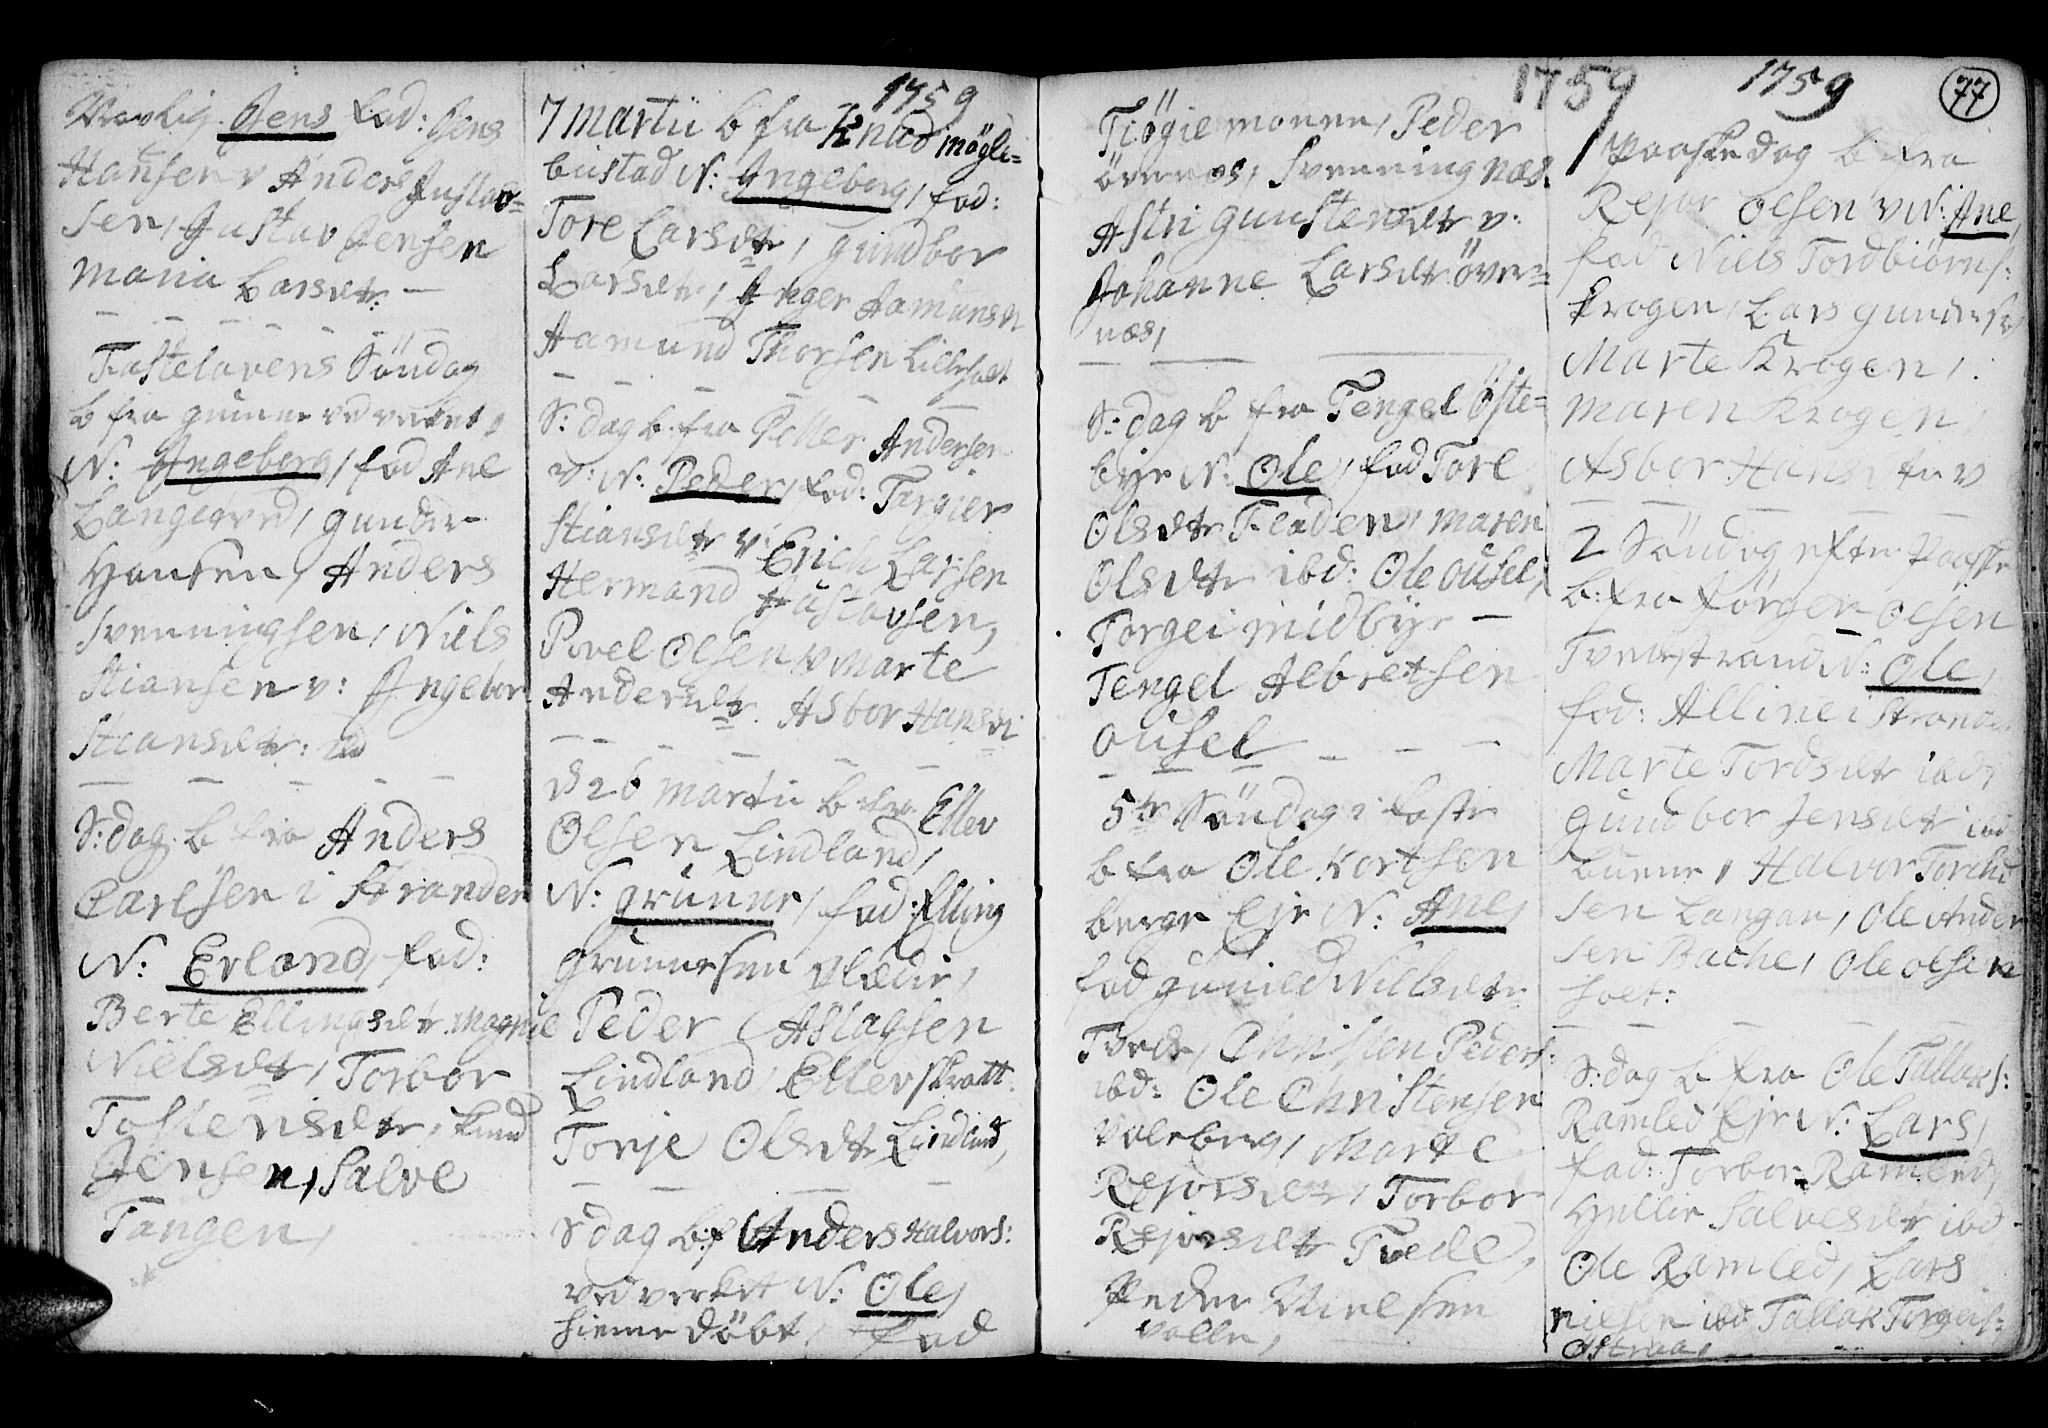 Jens fad: Jens
Hansen v Anders Gustav=
sen, Gustav Jensen
Maria Larsdtr: —
Fastelavens Söndag
b fra gunner ved verket,
N: Ingeberg, fad Ane
Langegerd, gunder
Hansen, Anders
Svenningsen, Niels
Stiansen v: Ingebor
Stiansdtr:
S: dag b fra Anders
Carlsen i Stranden
N: Erland, fad:
Berte Ellingsdtr. Magnil
Nielsdtr, Torbor
Tostensdtr, Knud
Jensen, Salve
Tangen,
1759
7 Martii b fra Knud Mögle=
bustad N: Ingeberg, fad:
Tore Larsdtr, gundbor
Larsdtr, Inger Aamunsd
Aamund Thorsen Lilleholt
S: dag b: fra Peller Andersen
v: N: Peder, fad: Torgier
Stiansdtr v: Erich Larsen
Hermand Gustavsen,
Povel Olsen v Marte
Andersdtr. Asbor Hansd
d 26 Martii b fra Ellev
Olsen Lindland,
N: grunner, fad: Elling
Grunnesen
Peder Aslagsen
Lindland, Ellev Skratt.
Tonje Olsdtr Lindland,
S dag b: f Anders Halvors:
ved verket N: Ole,
hieme döbt, fad
1759
Tiögiemonen, Peder
övernæs, Svenning næs.
Astri gunstensdtr v:
Johanne Larsdtr över=
næs,
S: dag b fra Tengel Öste=
bye N: Ole, fad Tore
Olsdtr Fladen, Maren
Olsdtr ibd: Ole Ousel,
Torgei midbye —
Tengel Albretsen
Ousel
5te Söndag i faste
b fra Ole Kortsen
berge Eje N: Ane,
fad gunild Nielsdtr
Tvede, Christen Peders:
ibd: Ole Christensen
Voleberg, Marte
Rejorsdtr, Torbor
Rejorsdtr Tvede,
Peder Nielsen
Valle,
1759
77
1 Paaskedag b fra
Rejor Olsen v N: Ane,
fad Niels Tordbiörns:
Krogen, Lars gunders:
Marte Krogen,
Maren Krogen,
Asbor Hansdtr v
2 Söndag efter Paaske
b: fra Jörgen Olsen
Tvedestrand N: Ole,
fad: Alline i Strand
Marte Tordsdtr ibd,
gundbor Jensdtr ibd
Halvor Torchild
sen Langan, Ole Ander
sen Bache, Ole Olsen
holt:
S: dag b fra Ole Tallaks:
Ramled Eje N: Lars,
fad: Torbor Ramled,
Hellie Salvesdtr ibd
Ole Ramled, Lars
Nielsen ibd Tallak Torgeis:
Ostraa,